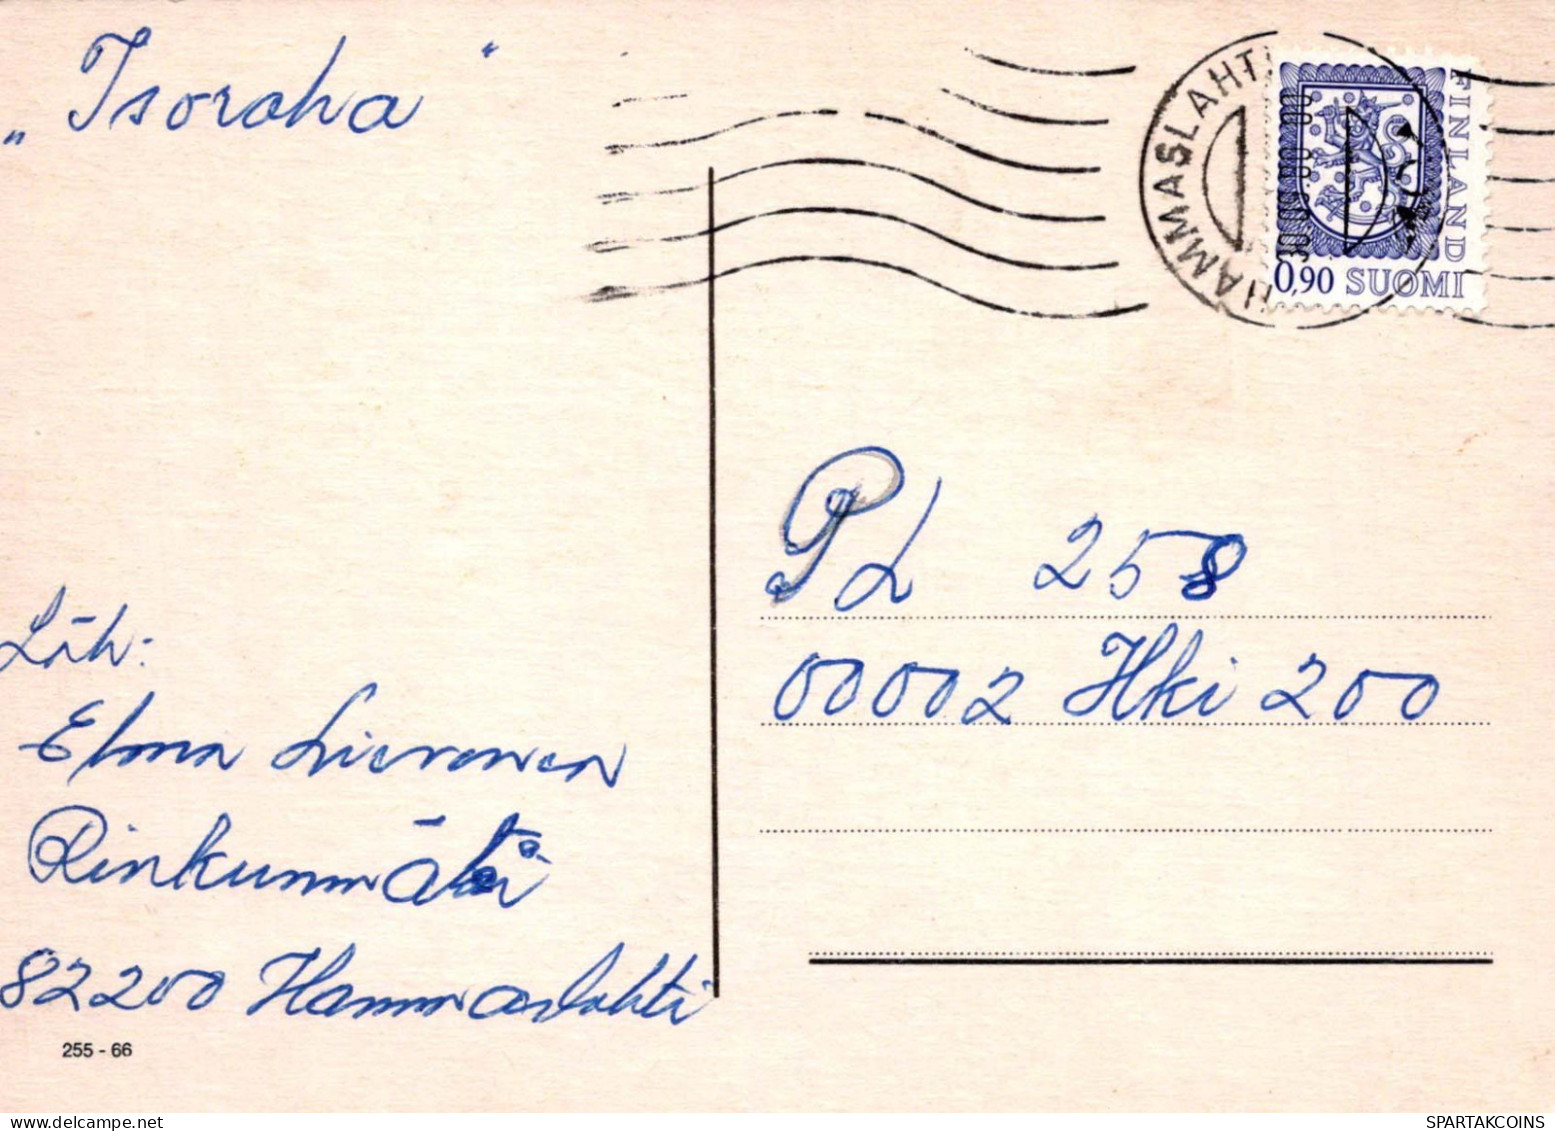 „Isoraha"
HAMMASLAHTI
FINLAND
0,90 SUOMI
PL 258
00002 Hki 200
Läh:
Elma
Rinkunmäki
82200 Hammaslahti
255 - 66
delcampe.net
SPARTAKCOINS